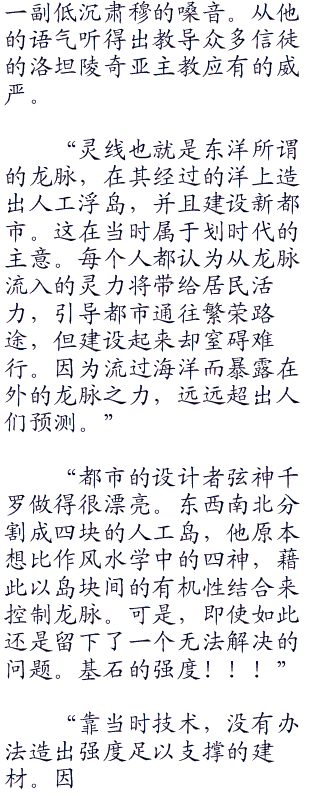 一副低沉肃穆的嗓音。从他
的语气听得出教导众多信徒
的洛坦陵奇亚主教应有的威
严。
“灵线也就是东洋所谓
的龙脉，在其经过的洋上造
出人工浮岛，并且建设新都
市。这在当时属于划时代的
主意。每个人都认为从龙脉
流入的灵力将带给居民活
力，引导都市通往繁荣路
途，但建设起来却窒碍难
行。因为流过海洋而暴露在
外的龙脉之力，远远超出人
们预测。”
“都市的设计者弦神千
罗做得很漂亮。东西南北分
割成四块的人工岛，他原本
想比作风水学中的四神，藉
此以岛块间的有机性结合来
控制龙脉。可是，即使如此
还是留下了一个无法解决的
问题。基石的强度！！！”
“靠当时技术，没有办
法造出强度足以支撑的建
材。因